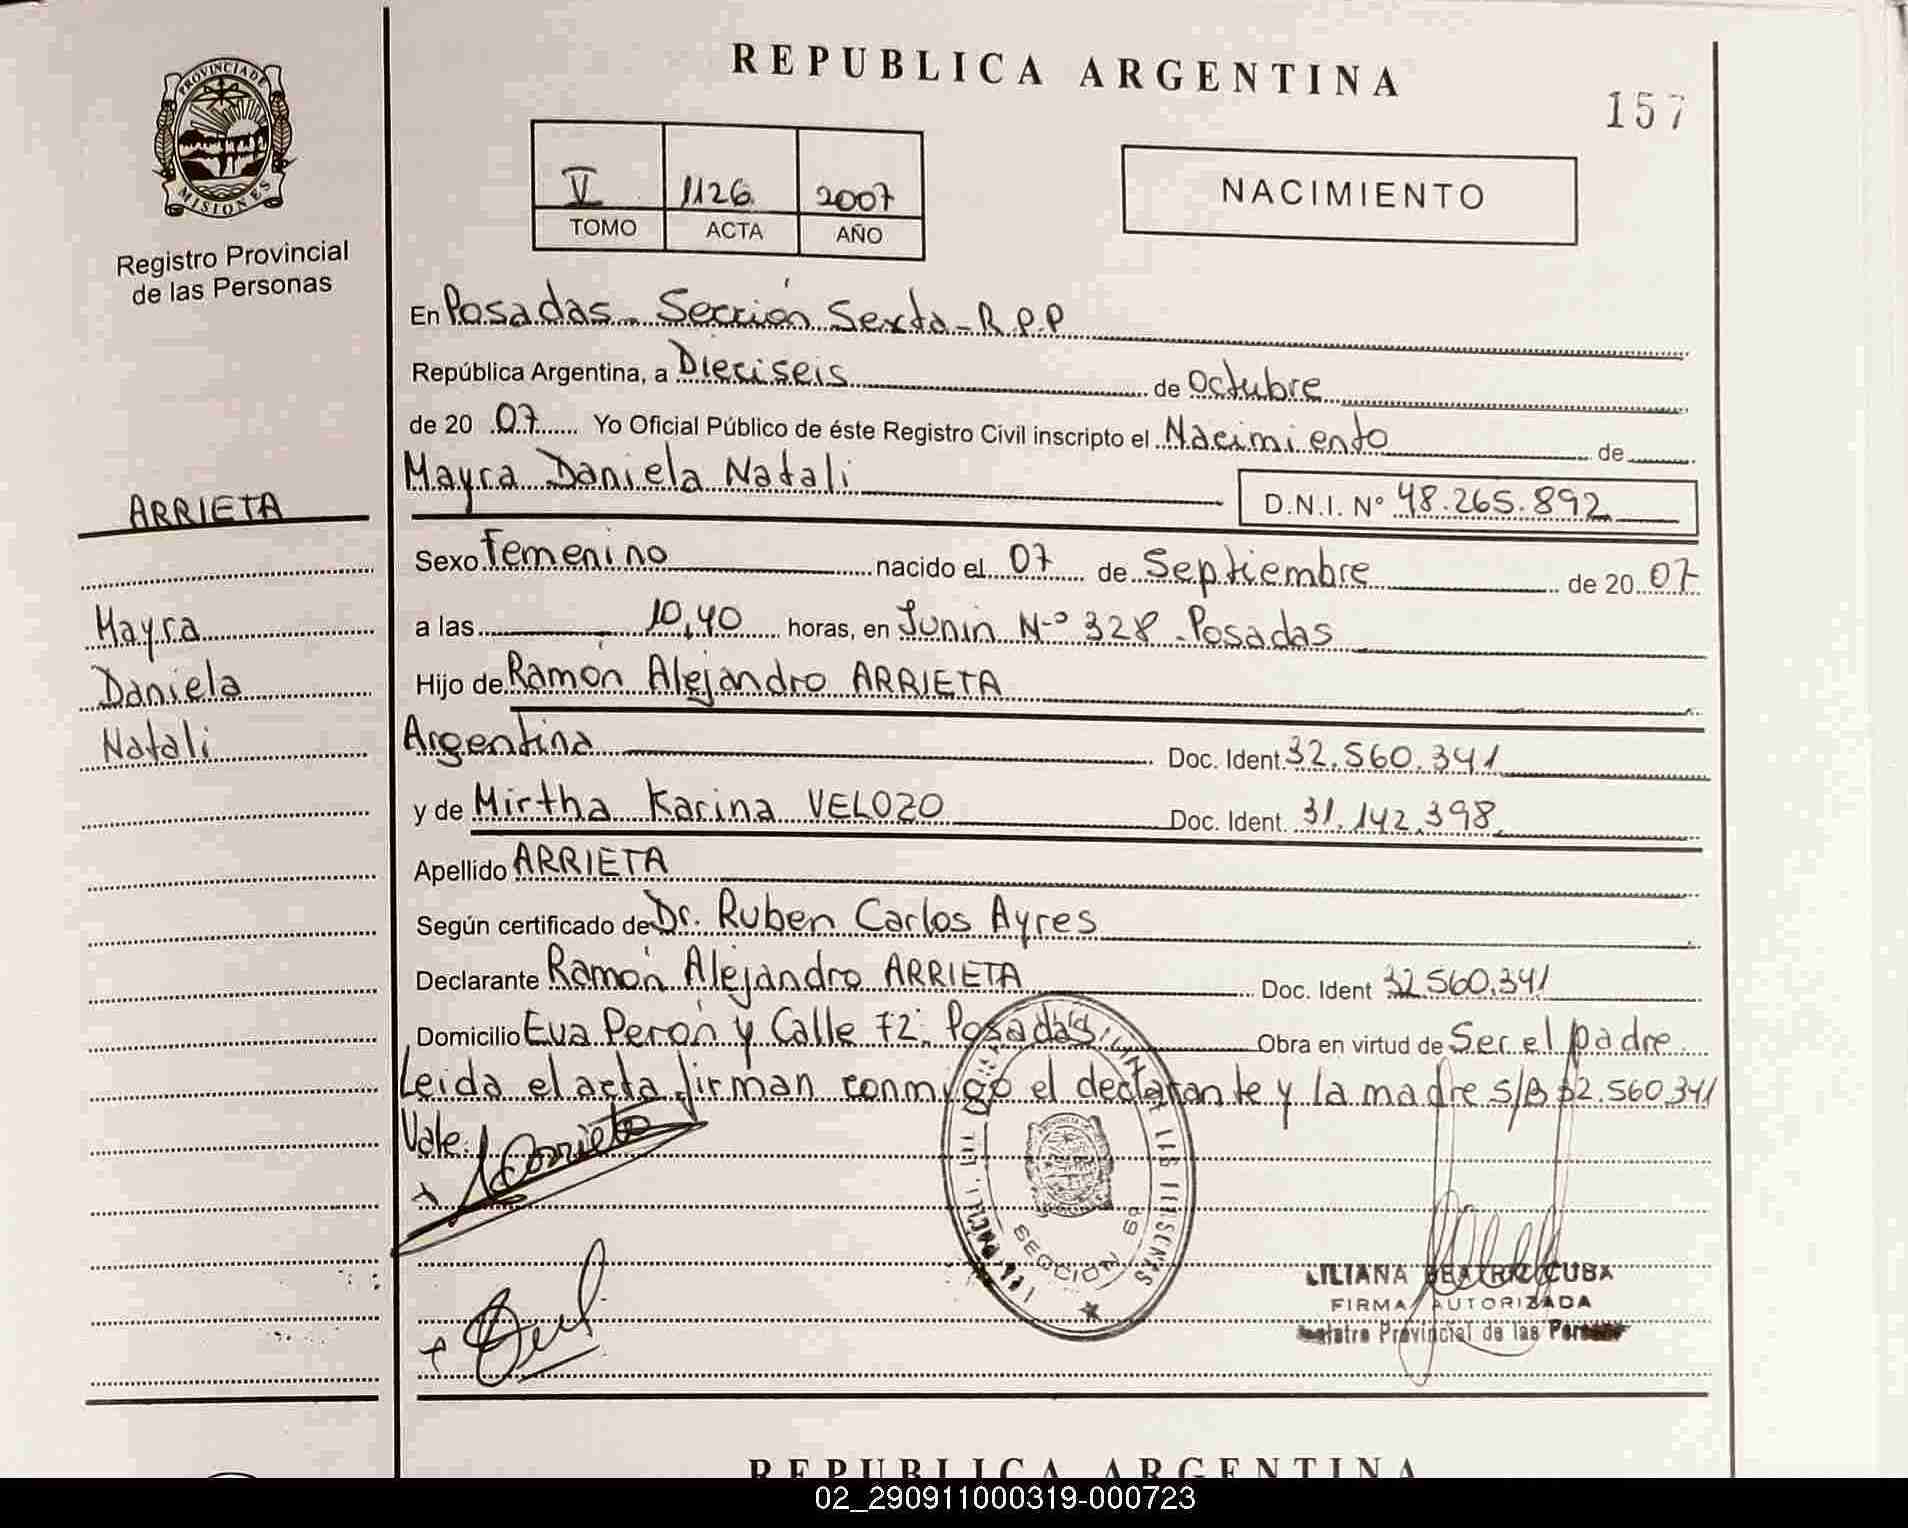 REPUBLICA ARGENTINA
157
PROVINCIA DE
MISIONES
Registro Provincial
de las Personas
V 1126 2007
TOMO ACTA AÑO
NACIMIENTO
En Posadas - Sección Sexta - R.P.P
República Argentina, a Dieciseis de Octubre
de 20 07 Yo Oficial Público de éste Registro Civil inscripto el Nacimiento de
Mayra Daniela Natali
D.N.I. Nº 48.265.892
ARRIETA
Mayra
Daniela
Natali
Sexo Femenino nacido el 07 de Septiembre de 20 07
a las 10,40 horas, en Junin Nº 328 - Posadas
Hijo de Ramón Alejandro ARRIETA
Argentina Doc. Ident. 32.560.341
y de Mirtha Karina VELOZO Doc. Ident. 31.142.398
Apellido ARRIETA
Según certificado de Dr. Ruben Carlos Ayres
Declarante Ramón Alejandro ARRIETA Doc. Ident 32.560.341
Domicilio Eva Perón y Calle 72. Posadas Obra en virtud de Ser el padre
Leida el acta firman conmigo el declarante y la madre S/B 32.560.341
Vale.
Arrieta
SECCION 6a
LILIANA BEATRIZ CUBA
FIRMA AUTORIZADA
Registro Provincial de las Personas
REPUBLICA ARGENTINA
02_290911000319-000723